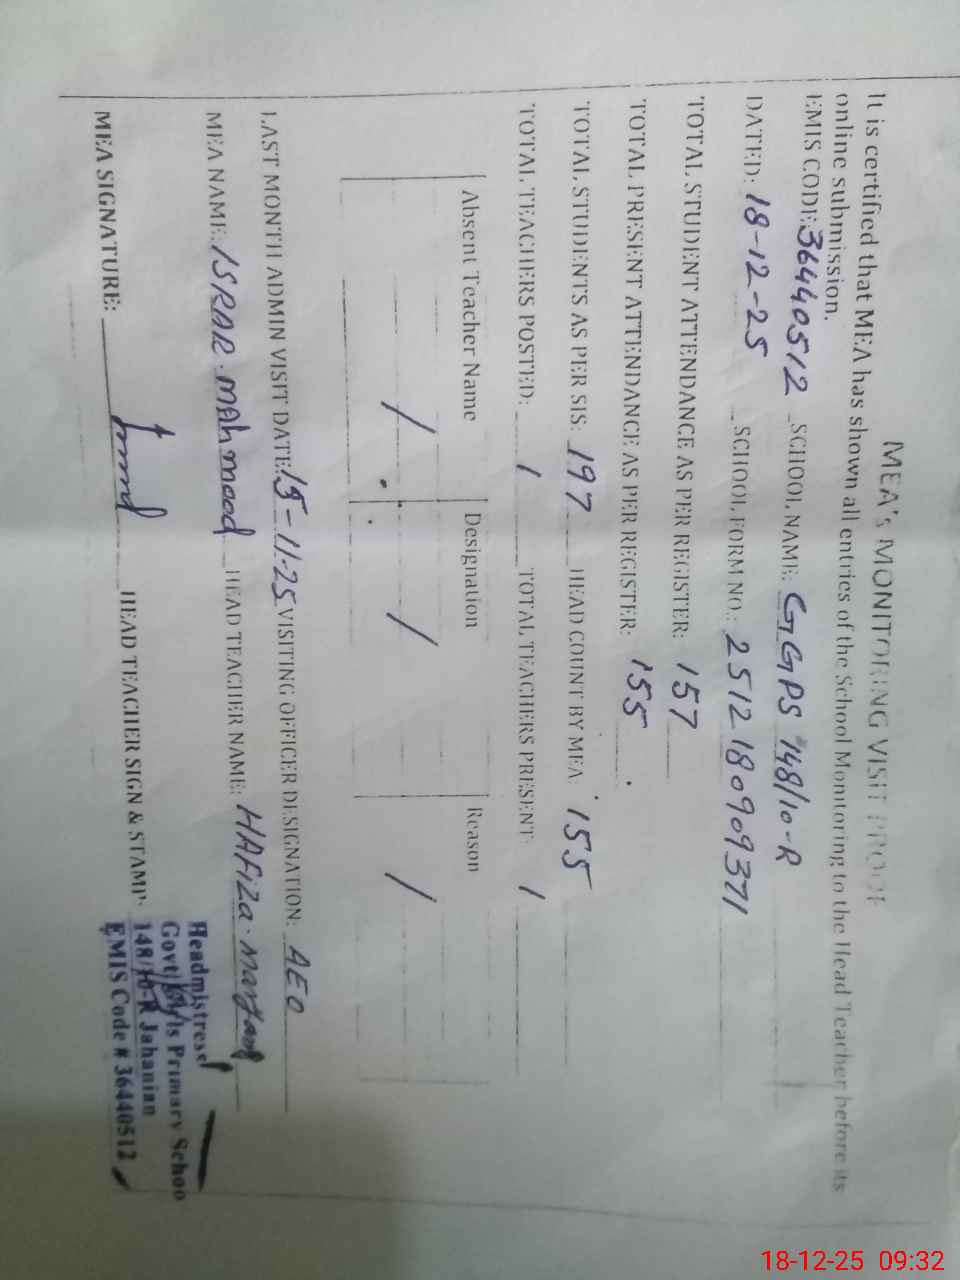 MEA's MONITORING VISIT PROOF
It is certified that MEA has shown all entries of the School Monitoring to the Head Teacher before its
online submission.
EMIS CODE 36440512 SCHOOL NAME: GGPS 148/10-R
DATED: 18-12-25 SCHOOL FORM NO.: 251218090937 1
TOTAL STUDENT ATTENDANCE AS PER REGISTER: 157
TOTAL PRESENT ATTENDANCE AS PER REGISTER: 155
TOTAL STUDENTS AS PER SIS: 197 HEAD COUNT BY MEA: 155
TOTAL TEACHERS POSTED: 1 TOTAL TEACHERS PRESENT: 1
Absent Teacher Name Designation Reason
/ / /
LAST MONTH ADMIN VISIT DATE: 15-11-25 VISITING OFFICER DESIGNATION: AEO
MEA NAME: ISRAR MAhmood HEAD TEACHER NAME: HAFiza
MEA SIGNATURE: HEAD TEACHER SIGN & STAMP:
Headmistress
Govt Girls Primary Schoo
148/10-R Jahanian
EMIS Code # 36440512
18-12-25 09:32